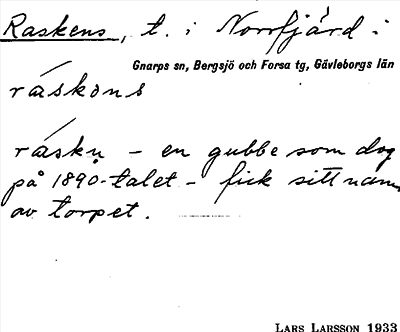 Raskens, t. i Norrfjärd i
Gnarps sn, Bergsjö och Forsa tg, Gävleborgs län
ráskɔns
ráskn̥ – en gubbe som dog
på 1890-talet – fick sitt namn
av torpet.
LARS LARSSON 1933